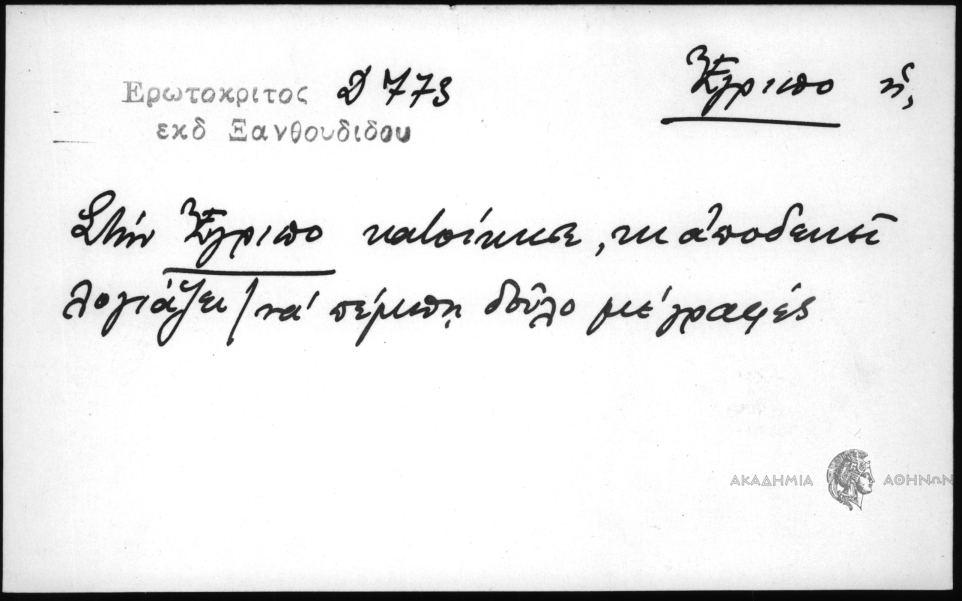 Ερωτοκριτος Δ 773
εκδ Ξανθουδιδου
Ἔγριπο ἡ,
Στὴν Ἔγριπο κατοίκησε, κι ἀποδεκεῖ
λογιάζει / νὰ πέμπῃ δοῦλο μὲ γραφές
ΑΚΑΔΗΜΙΑ ΑΘΗΝΩΝ